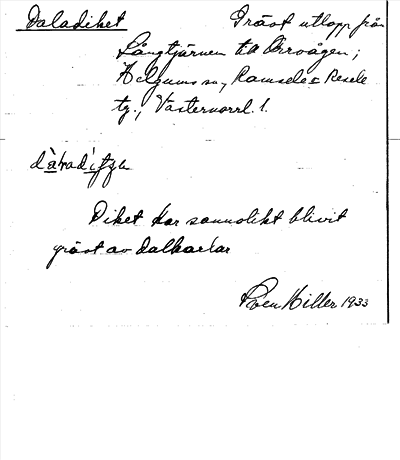 Daladiket Grävt utlopp från
Långtjärnen till
Helgums sn, Ramsele o Resele
tg., Västernorrl. l.
Diket har sannolikt blivit
grävt av dalkarlar
1933